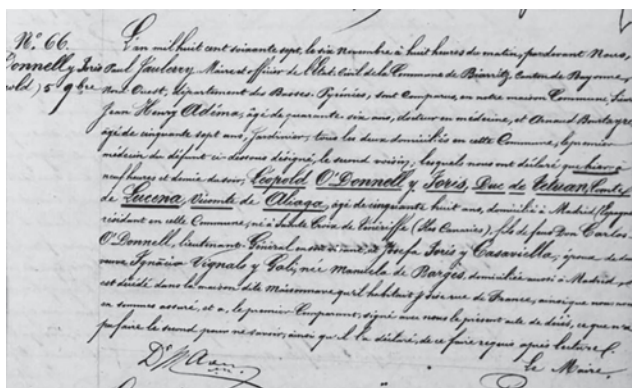 Nº 66.
O'Donnell y Joris
Léopold 5 9bre
L'an mil huit cent soixante sept, le six novembre à huit heures du matin, pardevant Nous,
Paul Jaulerry Maire et officier de l'État Civil de la Commune de Biarritz, Canton de Bayonne,
Nord Ouest, Département des Basses Pyrénées, sont Comparus, en notre maison Commune,
Jean Henry Adéma, âgé de quarante six ans, docteur en médecine, et Arnaud
âgé de cinquante sept ans, Jardinier, tous les deux domiciliés en cette Commune, le premier
médecin du défunt ci-dessous désigné, le second voisin, lesquels nous ont déclaré que hier à
neuf heures et demie du soir, Léopold O'Donnell y Joris, Duc de Tetuan, Comte
de Lucena, Vicomte de Aliaga, âgé de cinquante huit ans, domicilié à Madrid (Espagne)
résidant en cette Commune, né à Sainte Croix de Ténériffe (Iles Canaries), fils de feus Don Carlos
O'Donnell, lieutenant Général et Josefa Joris y Casaviella, époux de
Ignacia Vignals y née Manuela de Bargés, domiciliée aussi à Madrid,
est décédé dans la maison dite qu'il habitait rue de France, ainsi que nous nous
en sommes assuré, et a, le premier Comparant, signé avec nous le présent acte de décès, ce que n'a
pu faire le second pour ne savoir, ainsi qu'il l'a déclaré, de ce faire requis après lecture
Le Maire,